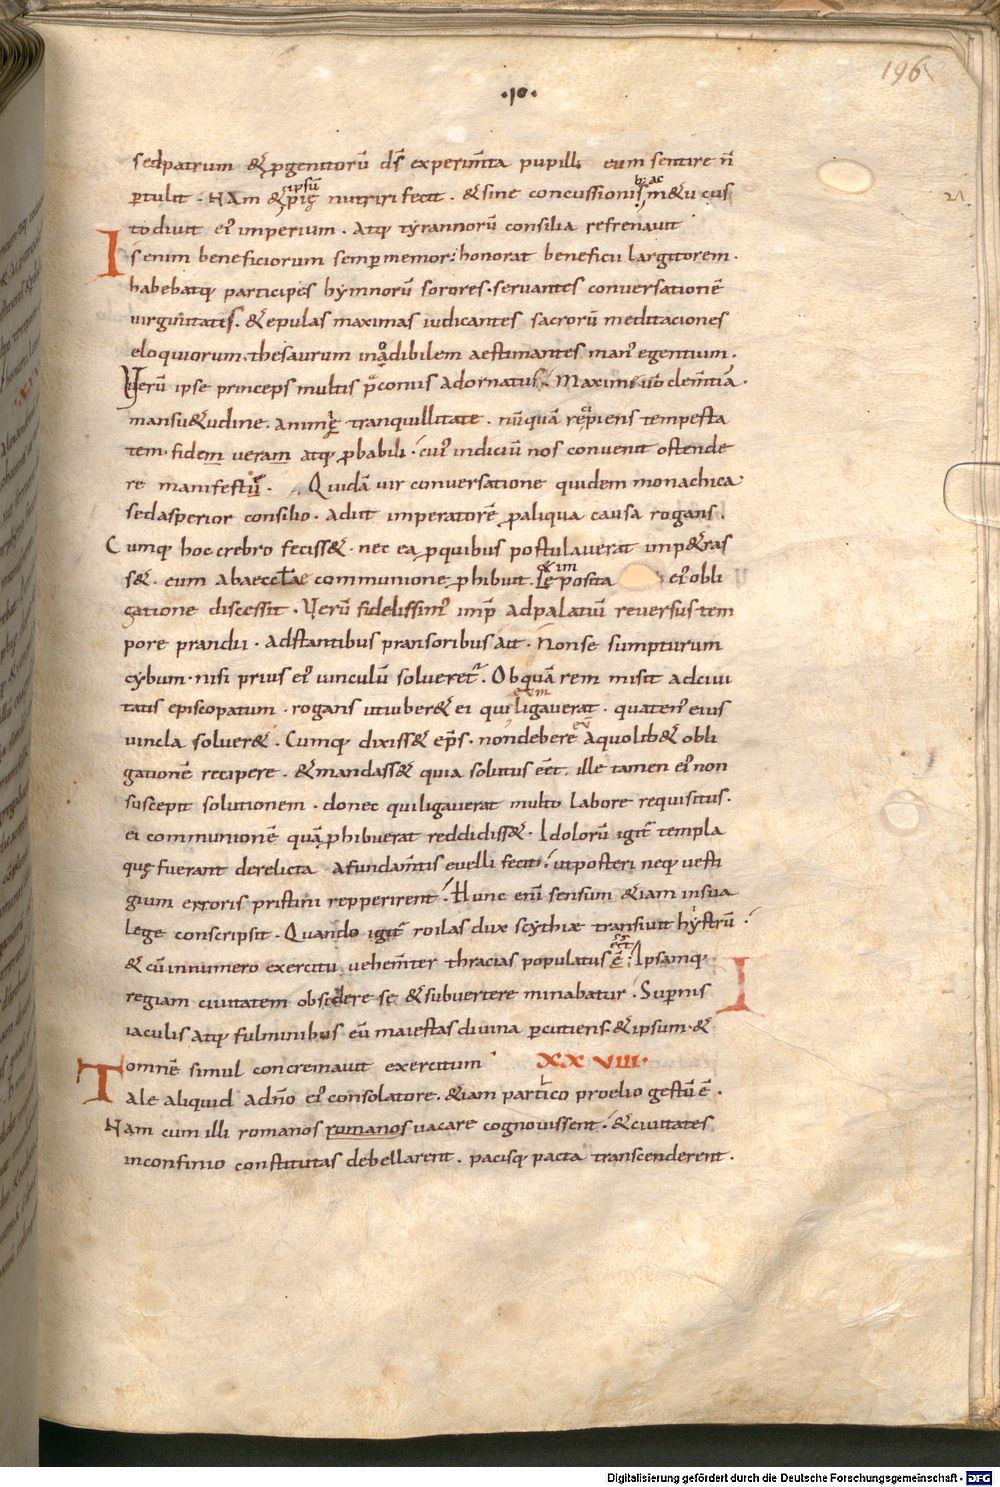 196
·10·
sedpatrum & ꝓgenitorũ ds̄ experim̃ta pupilli eum sentire ñ
ꝑtulit . NAm & ipsũ pię nutriri fecit . & sine concussionis b; ac m&u cus
todiuit ei᾽ imperium . Atq; tyrannorũ consilia refrenauit
Is enim beneficiorum semꝑ memor : honorat beneficii largitorem .
habebatq; participes hymnorũ sorores . servantes conversationē
virginitatis . & epulas maximas iudicantes sacrorũ meditaciones
eloquiorum . thesaurum inaudibilem aestimantes man᾽ egentium .
Verũ ipse princeps multis p̄coniis adornatus . Maxime u᾽o clem̃tiā .
mansu&udine . animiq; tranquillitate . nũquā recipiens tempesta
tem . fidem veram atq; ꝓbabili . cui᾽ indiciũ nos convenit ostende
re manifestũ . Quidā vir conversatione quidem monachica
sed asperior consilio . adiit imperatorē ꝓ aliqua causa rogans .
Cumq; hoc crebro feciss& . nec ea ꝓ quibus postulaverat imp&ras
s& . eum ab aeccl̄ae communione ꝓhibuit . & im posita ei᾽ obli
gatione discessit . Verũ fidelissim᾽ imp̄ ad palatiũ reversus tem
pore prandii . adstantibus pransoribus ait . Non se sumpturum
cybum . nisi prius ei᾽ vinculũ solveret᷑ . Ob quā rem misit ad ciui
tatis episcopatum . rogans ut iuber& ei qui eum ligaverat . quaten᾽ eius
vincla solver& . Cumq; dixiss& ep̄s . non debere eũ a quolib& obli
gationē recipere . & mandass& quia solutus eēt . ille tamen ei᾽ non
suscepit solutionem . donec qui ligaverat multo labore requisitus .
ei communionē quā ꝓhibuerat reddidiss& . Idolorũ igit᷑ templa
quę fuerant derelicta a fundam̃tis evelli fecit . ut posteri neq; vesti
gium erroris pristini repperirent . Hunc enī sensum &iam in sua
lege conscripsit . Quando igit᷑ roilas dux scythiæ transiuit hystrũ
& cũ innumero exercitu vehem̃ter thracias populatus ē : Ipsamq;
regiam ciuitatem obsidere se & subvertere minabatur . Supernis
iaculis atq; fulminibus eũ maiestas diuina ꝑcutiens . & ipsum . &
omnē simul concremauit exercitum XXVIII .
Tale aliquid ad dn̄o ei᾽ consolatore . &iam partico proelio gestũ ē .
Nam cum illi romanos romanos vacare cognouissent . & ciuitates
in confinio constitutas debellarent . pacisq; pacta transcenderent .
Digitalisierung gefördert durch die Deutsche Forschungsgemeinschaft - DFG